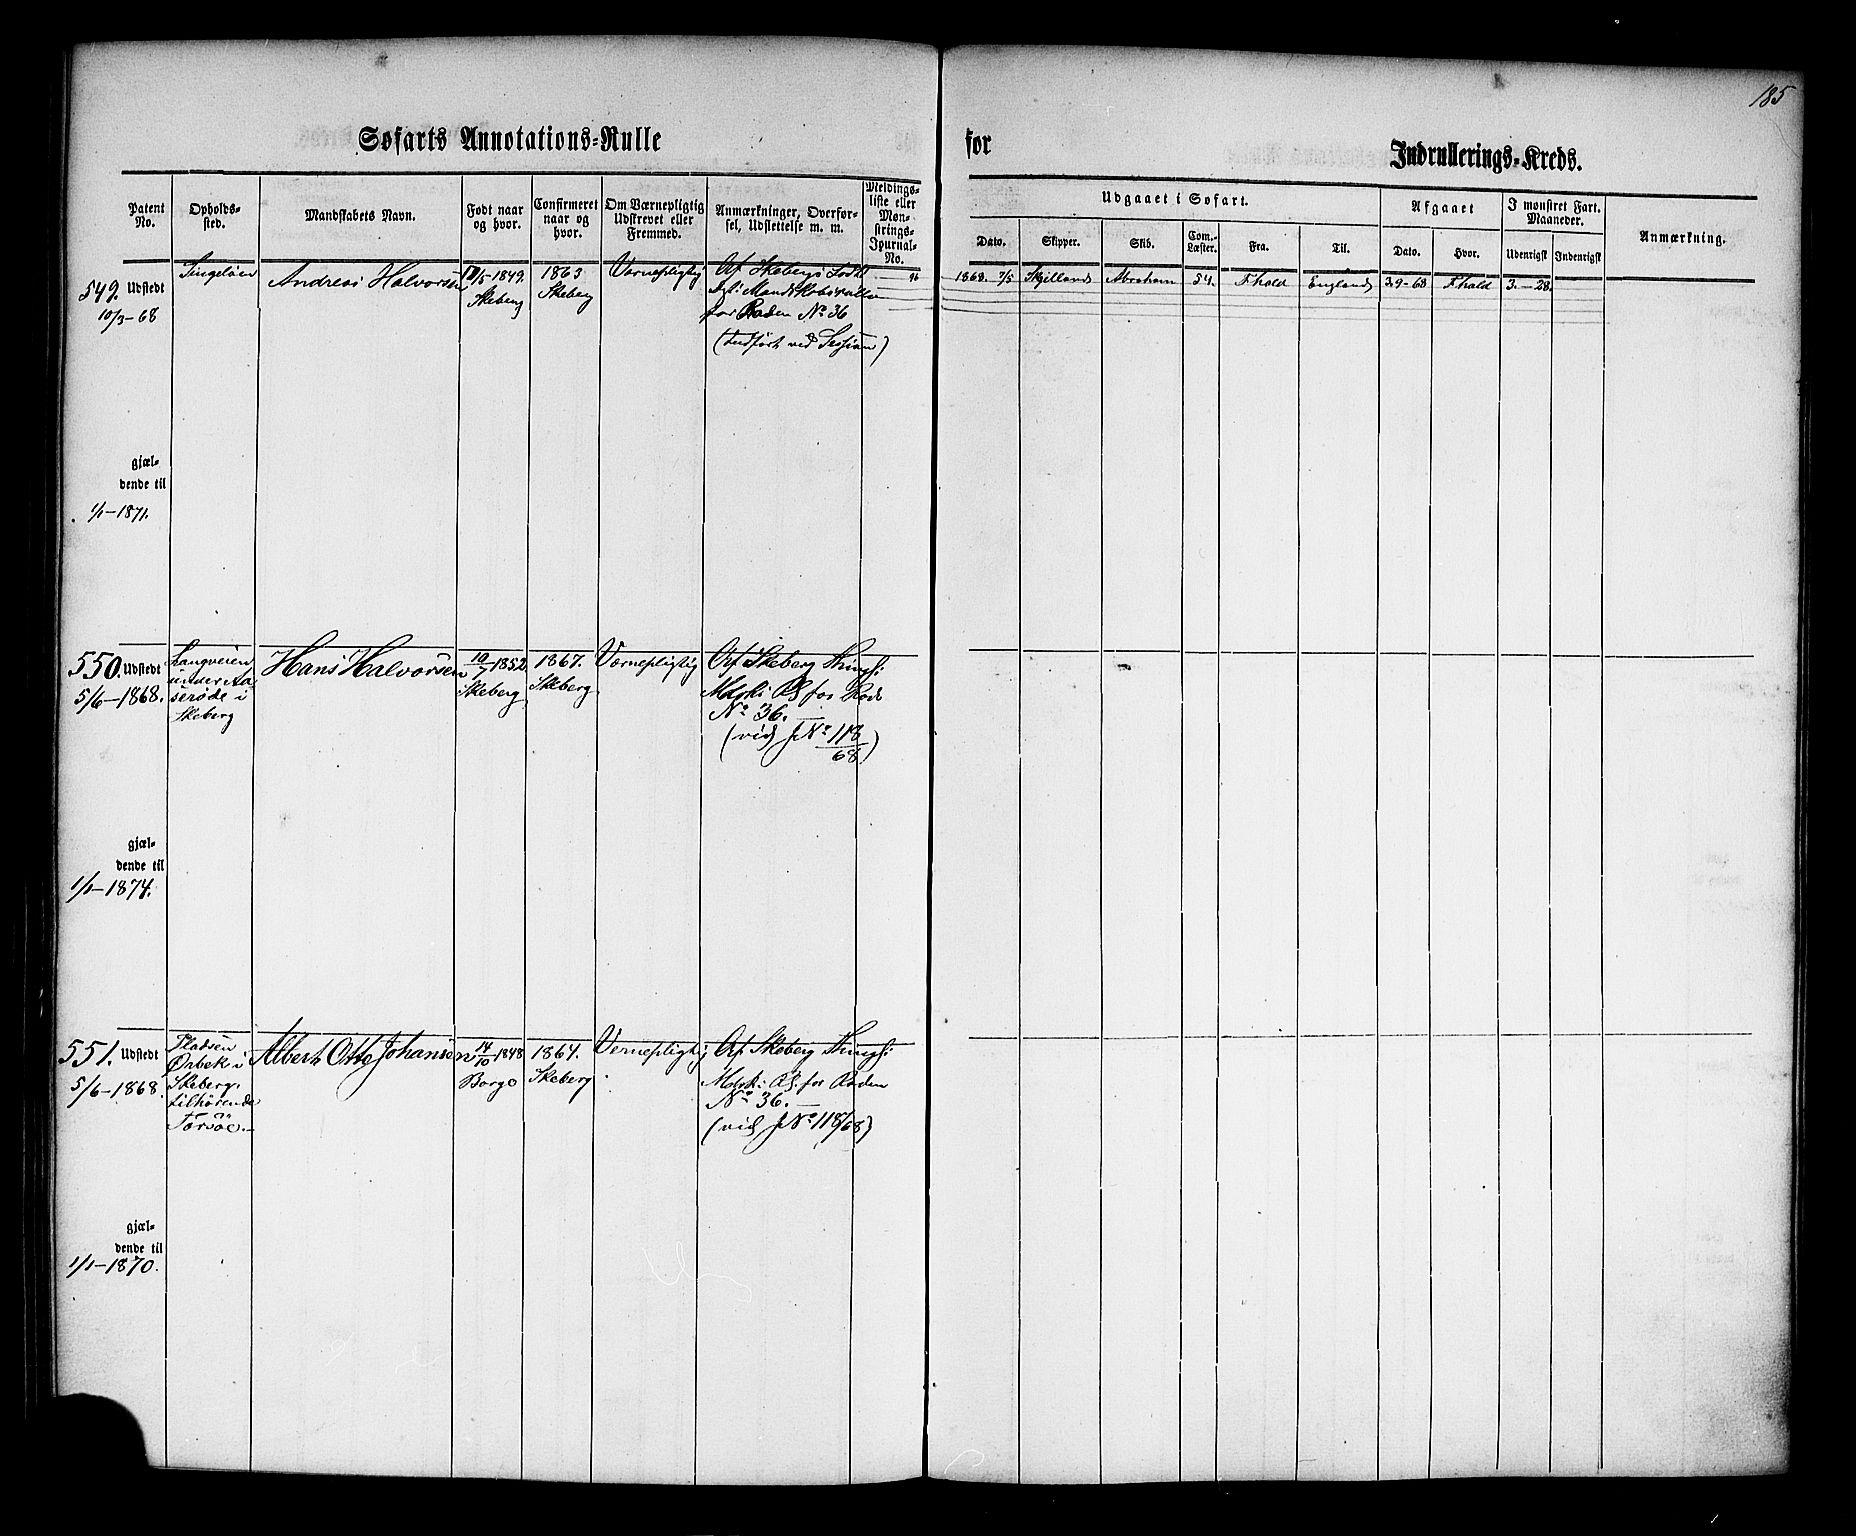 185
Søfarts Annotations-Rulle for Indrullerings-Kreds.
Patent No.
Opholds-sted.
Mandskabets Navn.
Født naar og hvor.
Confirmeret naar og hvor.
Om Værnepligtig Udskrevet eller Fremmed.
Anmærkninger, Overførsel, Udslettelse m. m.
Meldings-liste eller Mønstrings-Journal-No.
Udgaaet i Søfart.
Dato.
Skipper.
Skib.
Com.-Læster.
Fra.
Til.
Afgaaet
Dato.
Hvor.
I mønstret Fart. Maaneder.
Udenrigst
Indenrigst
Anmærkning.
549. Udstedt
10/3-68
Singeløen
Andreas Halvorsen
/5-1849.
Skeberg
1863
Skeberg
Værnepligtig
Af Skebergs
Mandskabsrulle
for Roden No 36
(Indført ved )
96
1868. 7/5
Skjelland
Abraham
54.
Fhald
England
3.9-68
Fhald
3.-28.
gjæl-
dende til
1/1-1871.
550. Udstedt
5/6-1868.
Langveien
under Aa
serøde i
Skeberg
Hans Halvorsen
10/7-1852
Skeberg
1867.
Skeberg
Værnepligtig
Af Skeberg Thingl:
Mdsk: Rl. for Rode
No 36.
(vid JNo 118/68)
gjæl-
dende til
1/1-1874.
551. Udstedt
5/6-1868.
Pladsen
Ørbek i
Skeberg,
tilhørende
Torsøe.
Albert Otto Johansen
14/10-1848
Borge
1864.
Skeberg
Vernepligtig
Af Skeberg Thingl:
Mdsk: Rl. for Roden
No 36.
(vid JNo 118/68)
gjæl-
dende til
1/1-1870.